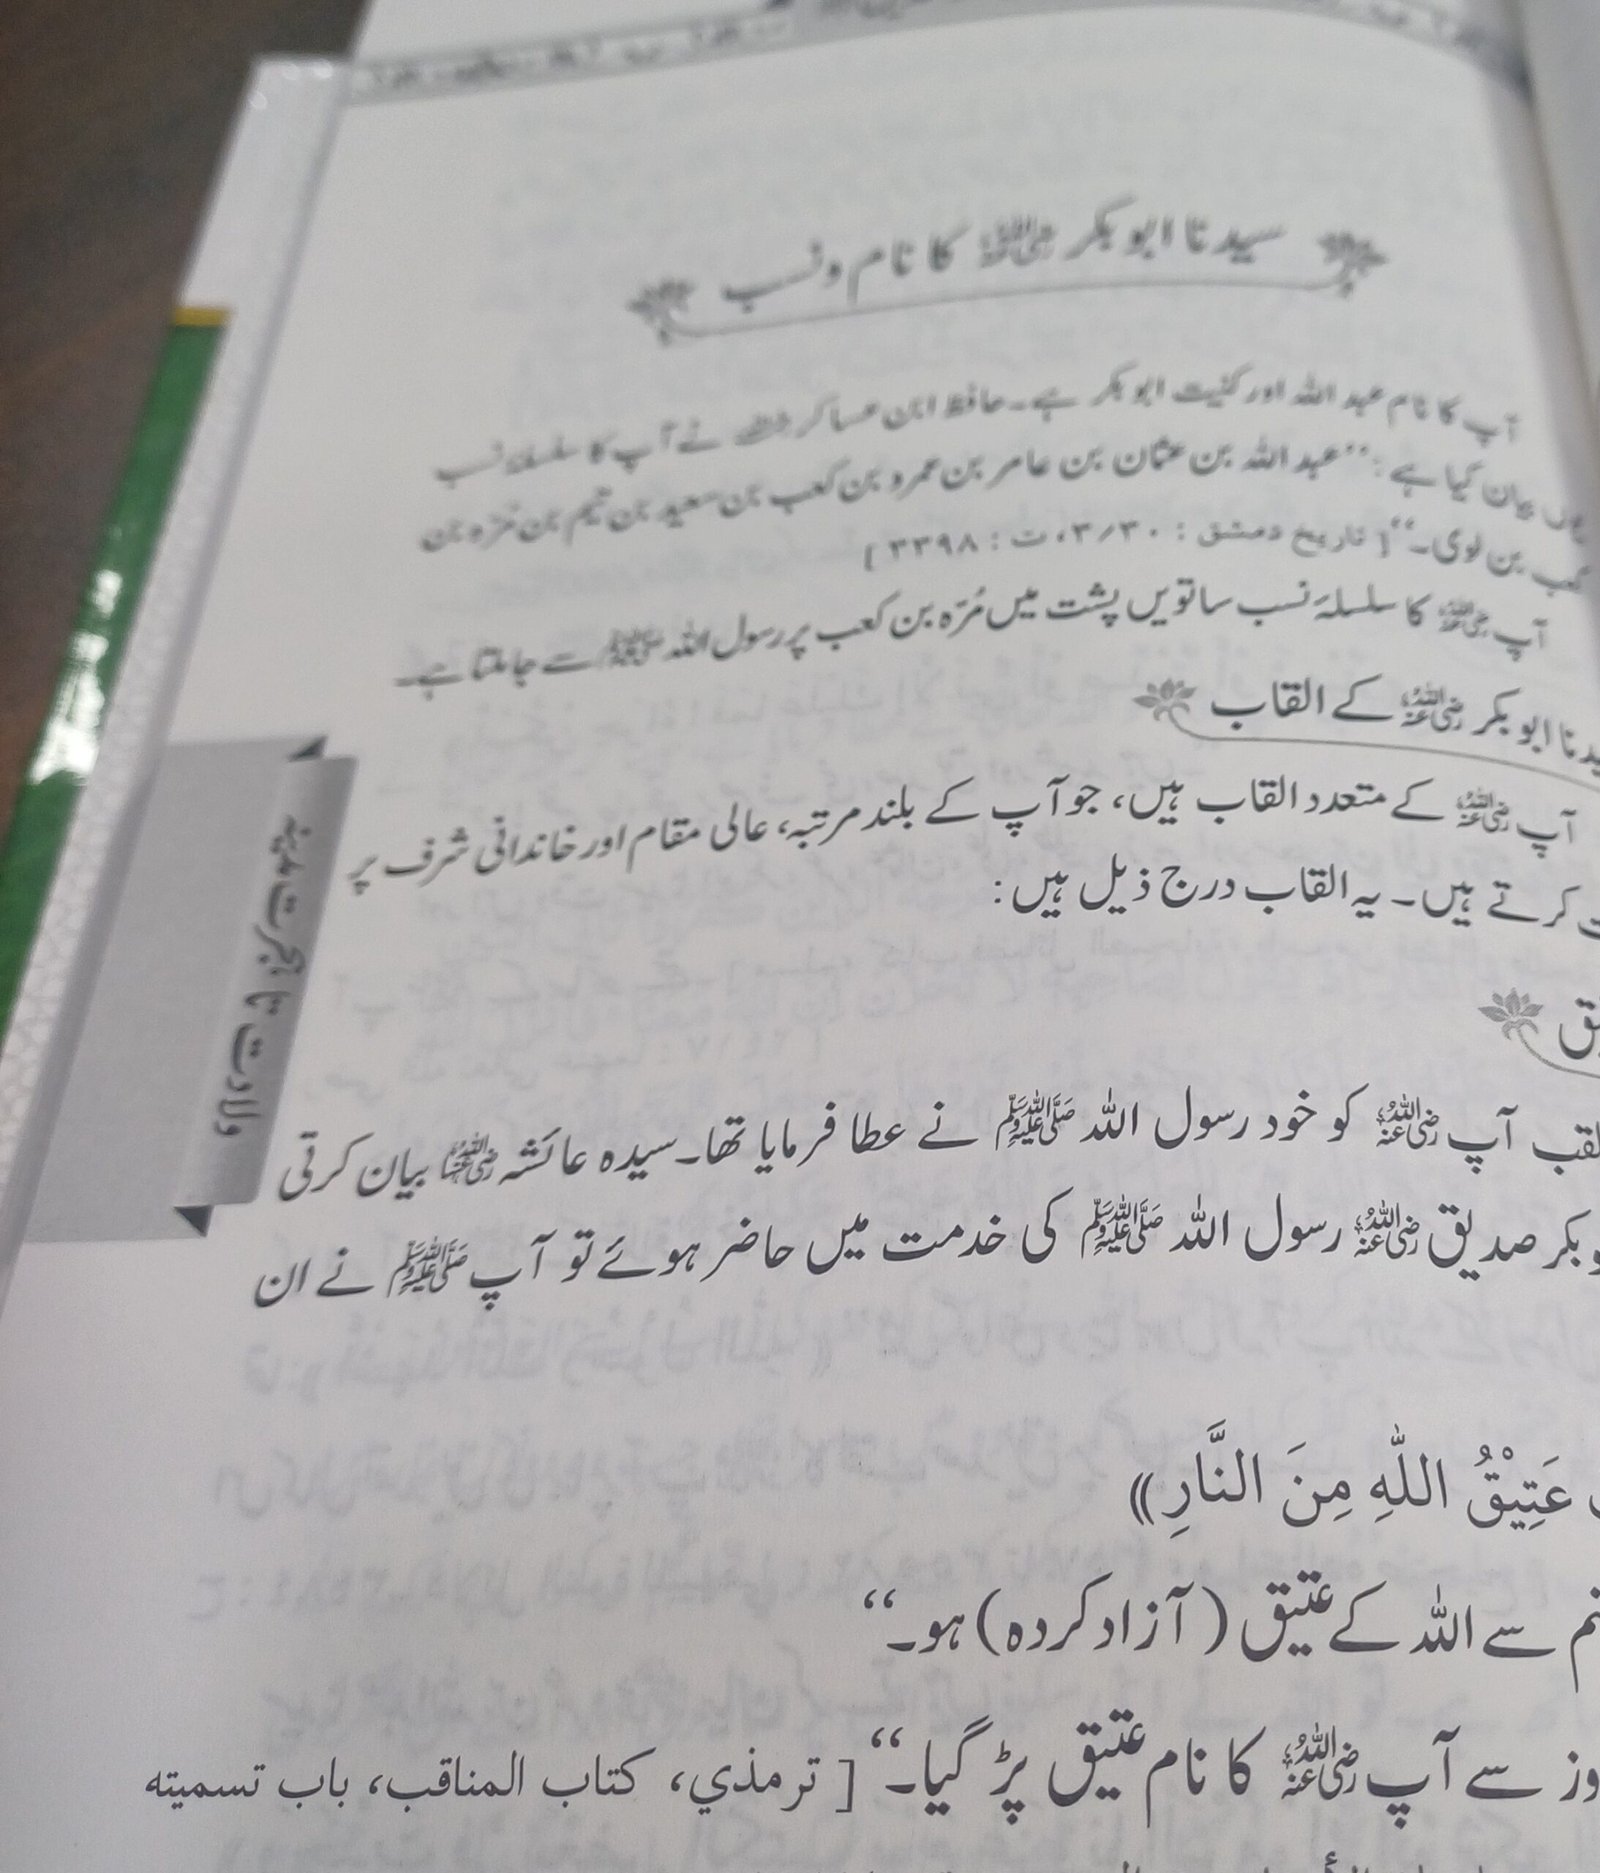 سیدنا ابوبکر رضی اللہ عنہ کا نام و نسب
آپ کا نام عبد اللہ اور کنیت ابوبکر ہے۔ حافظ ابن عساکر رحمہ اللہ نے آپ کا سلسلۂ نسب
بیان کیا ہے: ”عبد اللہ بن عثمان بن عامر بن عمرو بن کعب بن سعید بن تیم بن مُرّہ بن
کعب بن لوی۔“ [ تاریخ دمشق : ۳؍۳۰، ت : ۳۳۹۸ ]
آپ رضی اللہ عنہ کا سلسلۂ نسب ساتویں پشت میں مُرّہ بن کعب پر رسول اللہ ﷺ سے جا ملتا ہے۔
ابوبکر رضی اللہ عنہ کے القاب
آپ رضی اللہ عنہ کے متعدد القاب ہیں، جو آپ کے بلند مرتبہ، عالی مقام اور خاندانی شرف پر
کرتے ہیں۔ یہ القاب درج ذیل ہیں:
لقب آپ رضی اللہ عنہ کو خود رسول اللہ ﷺ نے عطا فرمایا تھا۔ سیدہ عائشہ رضی اللہ عنہا بیان کرتی
بکر صدیق رضی اللہ عنہ رسول اللہ ﷺ کی خدمت میں حاضر ہوئے تو آپ ﷺ نے ان
عَتِيْقُ اللّٰهِ مِنَ النَّارِ))
سے اللہ کے عتیق ( آزاد کردہ ) ہو۔“
سے آپ رضی اللہ عنہ کا نام عتیق پڑ گیا۔“ [ ترمذي، كتاب المناقب، باب تسميته
ولادت تا ہجرت مدینہ